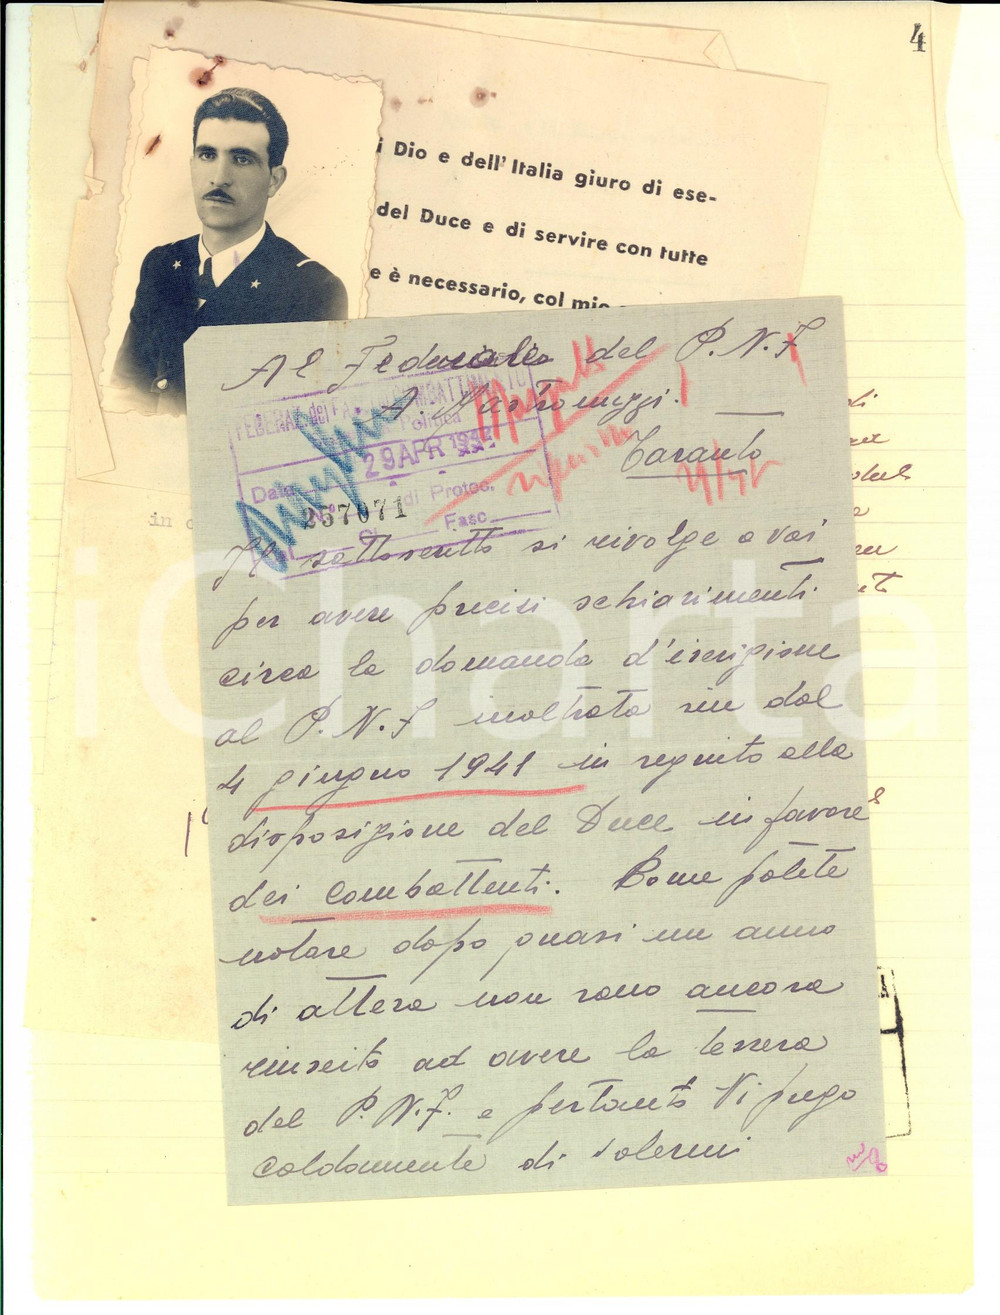 4
i Dio e dell'Italia giuro di ese-
del Duce e di servire con tutte
e è necessario, col mio
Al Federale del P.N.F
A. Mastromuzzi.
Taranto
FEDERAZ. dei FASCI di COMBATTIMENTO
Politica
Data 29 APR 1942
N. di Protoc.
257071
Cl. Fasc.
Il sottoscritto si rivolge a voi
per avere precisi schiarimenti
circa la domanda d'iscrizione
al P.N.F inoltrata sin dal
4 giugno 1941 in seguito alla
disposizione del Duce in favore
dei Combattenti. Come potete
notare dopo quasi un anno
di attesa non sono ancora
riuscito ad avere la tessera
del P.N.F. e pertanto Vi prego
caldamente di volermi
in
iCharta